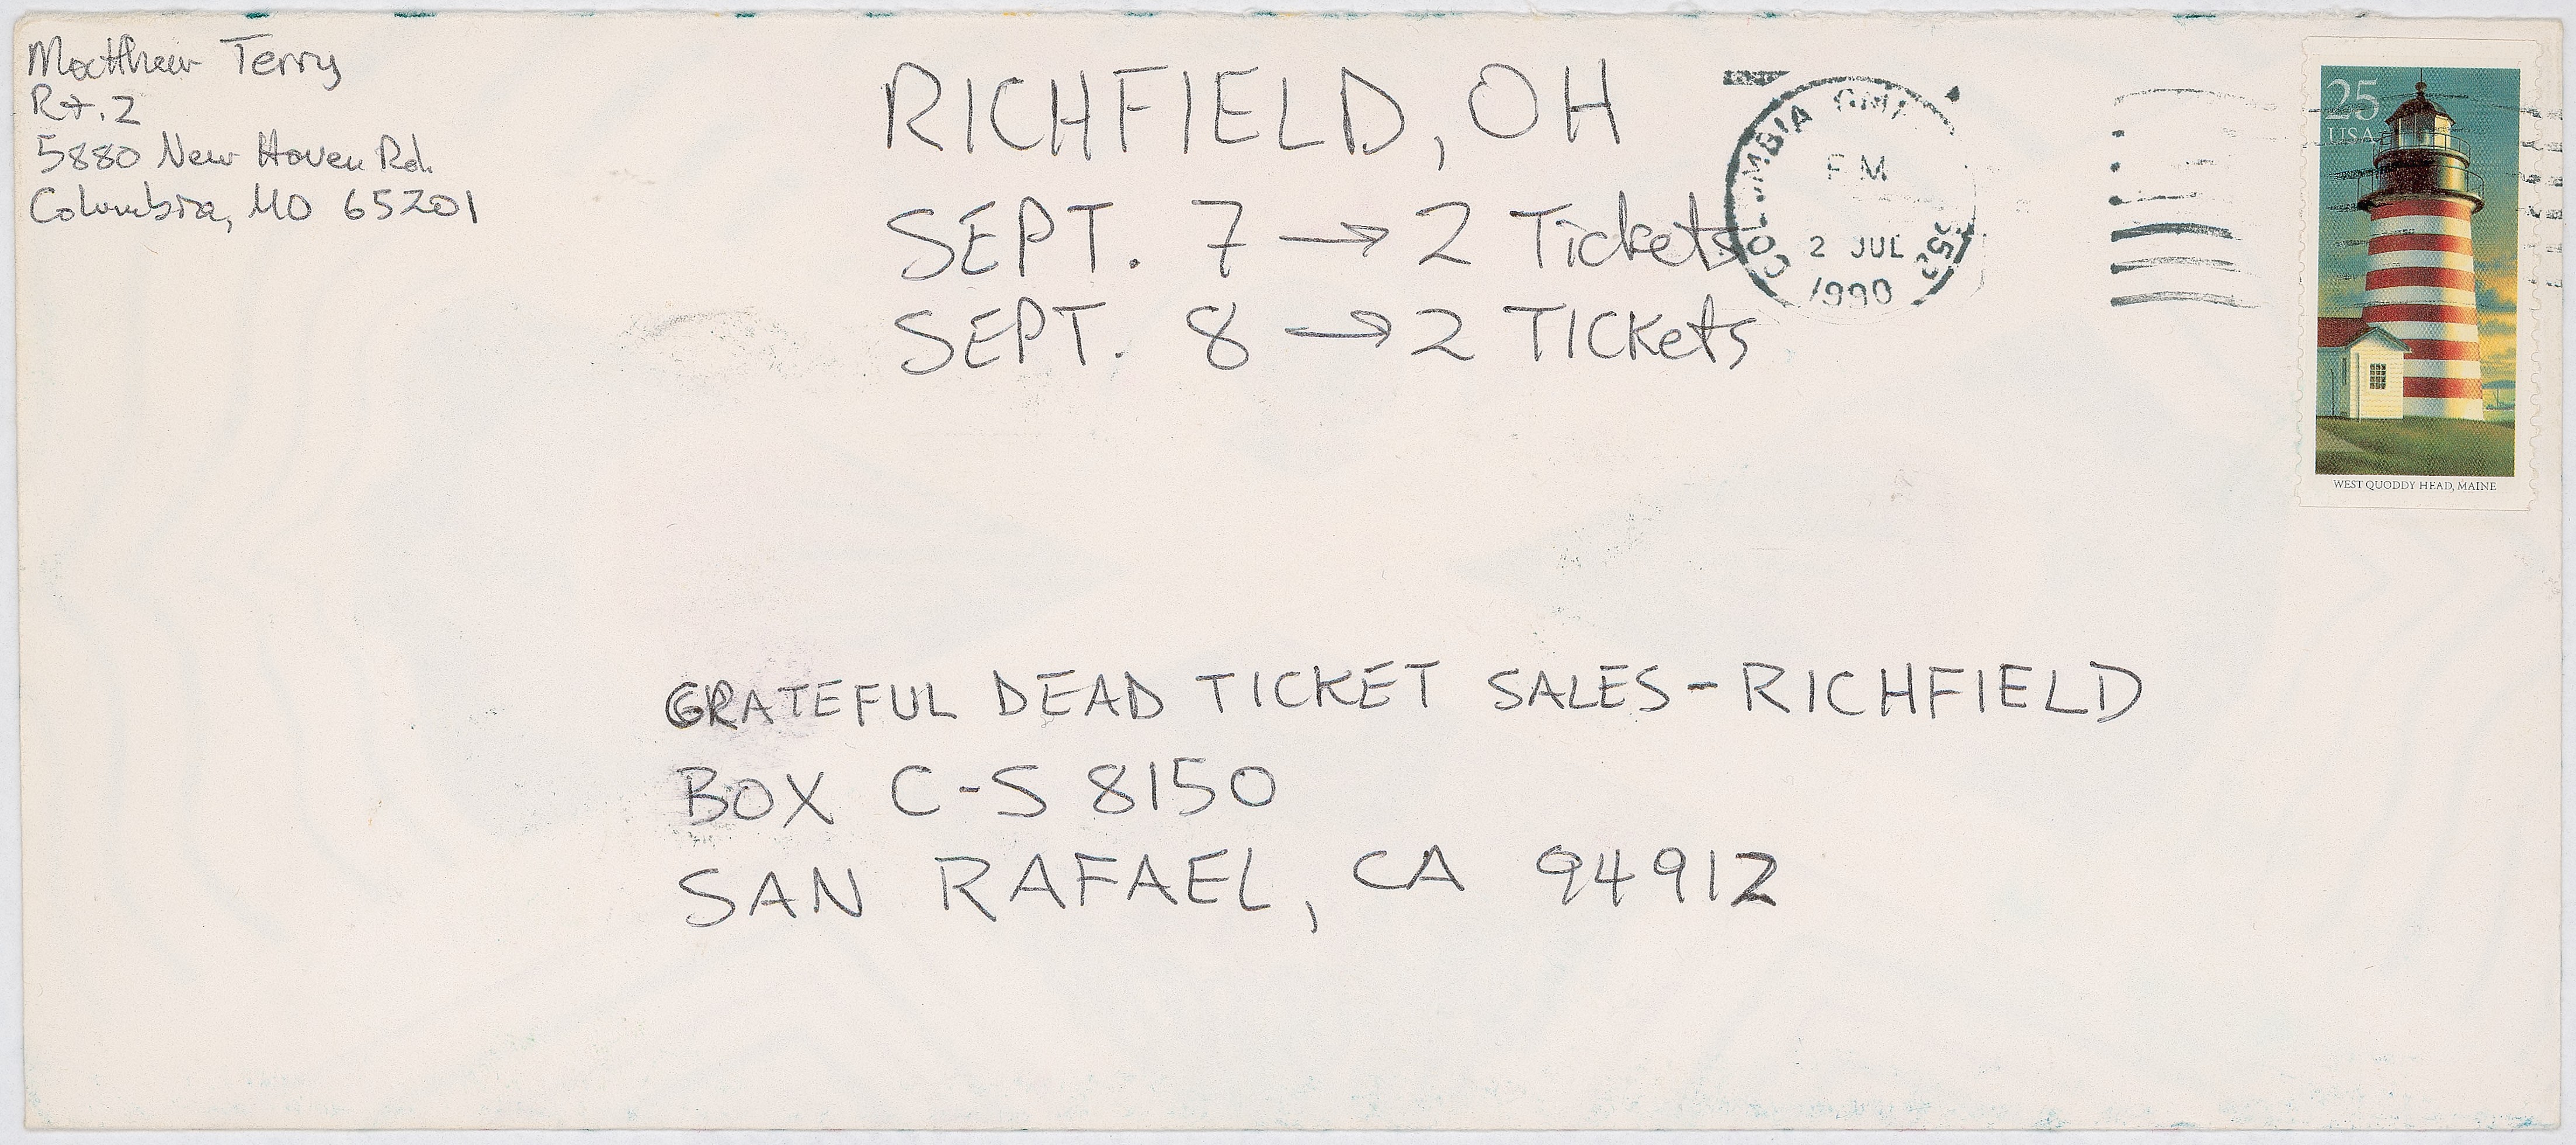 Matthew Terry
Rt. 2
5880 New Haven Rd.
Columbia, MO 65201
RICHFIELD, OH
SEPT. 7 → 2 Tickets
SEPT. 8 → 2 TICKets
PM
2 JUL
1990
25
USA
WEST QUODDY HEAD, MAINE
GRATEFUL DEAD TICKET SALES-RICHFIELD
BOX C-S 8150
SAN RAFAEL, CA 94912